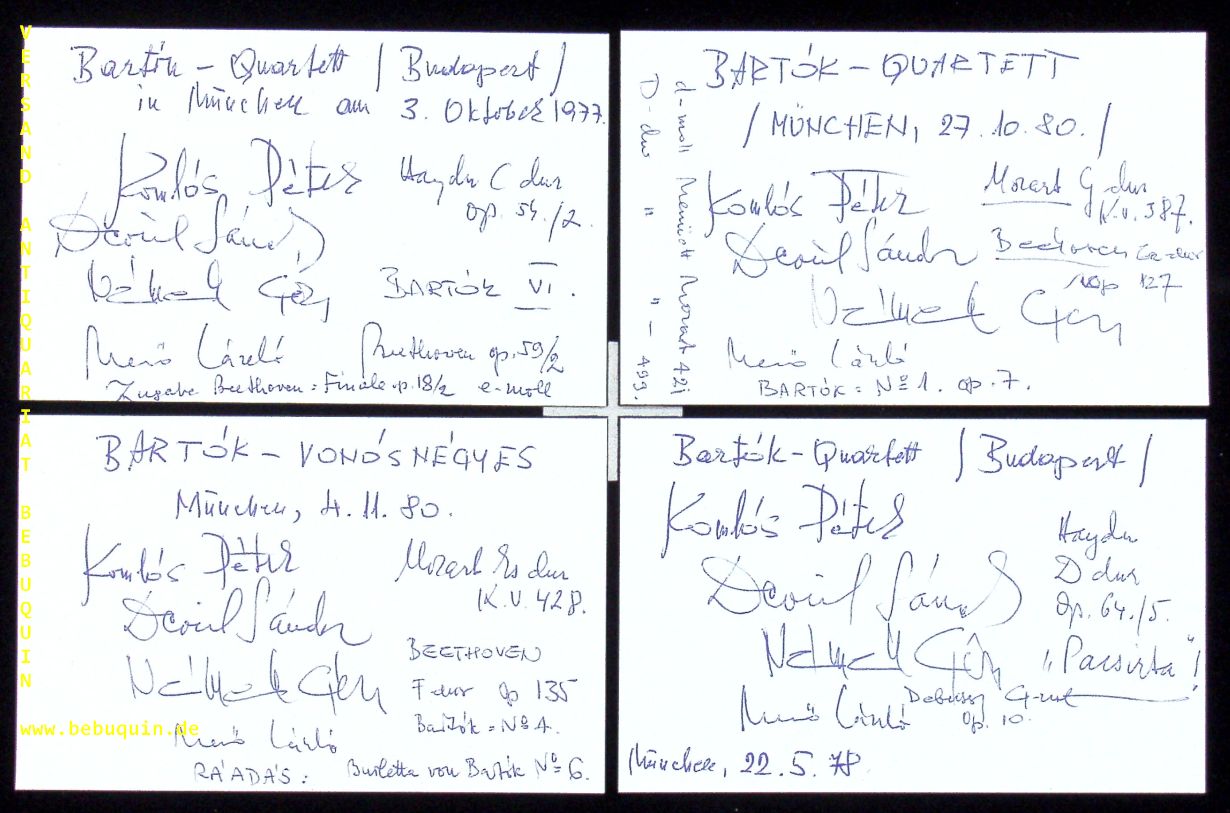 VERSAND ANTIQUARIAT BEBUQUIN
www.bebuquin.de
Bartók - Quartett / Budapest /
in München am 3. Oktober 1977.
Komlós Péter
Haydn C dur
op. 54./2.
Devich Sándor
Németh Géza
BARTÓK VI.
Mező László
Beethoven op. 59/2
Zugabe Beethoven: Finale op. 18/2 e-moll
BARTÓK - QUARTETT
/ MÜNCHEN, 27.10.80. /
Komlós Péter
Mozart G dur
K.v. 387.
Devich Sándor
Beethoven Es-dur
op 127
Németh Géza
Mező László
BARTÓK: No 1. op. 7.
d-moll Menuett Mozart 421
D-dur " " - 499.
BARTÓK - VONÓSNÉGYES
München, 4.11.80.
Komlós Péter
Mozart Es dur
K.V. 428.
Devich Sándor
BEETHOVEN
Németh Géza
F-dur op 135
Bartók = No 4.
Mező László
RÁADÁS: Burletta von Bartók No 6.
Bartók - Quartett / Budapest /
Komlós Péter
Haydn
D dur
Op. 64./5.
Devich Sándor
Németh Géza
"Pacsirta"!
Mező László
Debussy G-moll
op. 10.
München, 22.5.78.